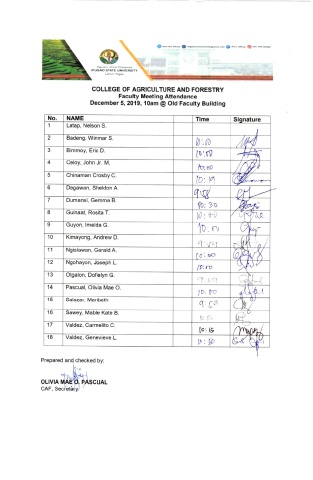 IFUGAO STATE UNIVERSITY
COLLEGE OF AGRICULTURE AND FORESTRY
Faculty Meeting Attendance
December 5, 2019, 10am @ Old Faculty Building
No. NAME Time Signature
1 Latap, Nelson S.
2 Badeng, Winmar S. 10:00
3 Bimmoy, Eric D. 10:58
4 Celoy, John Jr. M. 10:00
5 Chinamen Crosby C.
6 Degawan, Sheldon A 9:58
7 Dumansi, Gemma B. 10:30
8 Guinaat, Rosita T.
9 Guyon, Imelda G.
10 Kimayong, Andrew D.
11 Ngislawan, Gerald A. 10:00
12 Ngohayon, Joseph L. 10:10
13 Otgalon, Dofielyn G.
14 Pascual, Olivia Mae O. 10:00
15 Salazar, Maribeth 9:59
16 Sawey, Mable Kate B.
17 Valdez, Carmelito C. 10:15
18 Valdez, Genevieve L.
Prepared and checked by:
OLIVIA MAE O. PASCUAL
CAF, Secretary